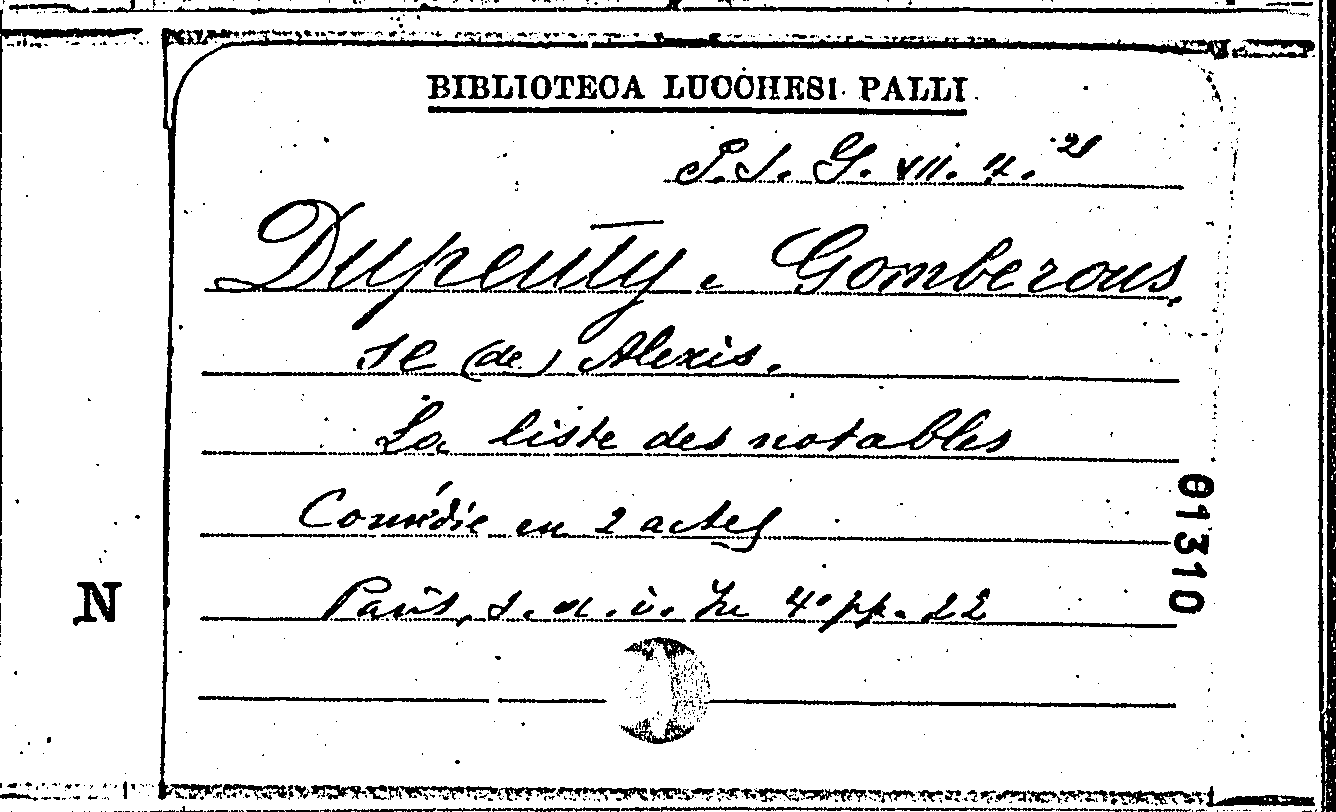 BIBLIOTECA LUCCHESI PALLI
P.S. G. VII. 4. 21
Dupeuty e Gomberous
se (de) Alexis.
La liste des notables
Comédie en 2 actes
Paris, s. d. i. In 4° pp. 22
01310
N